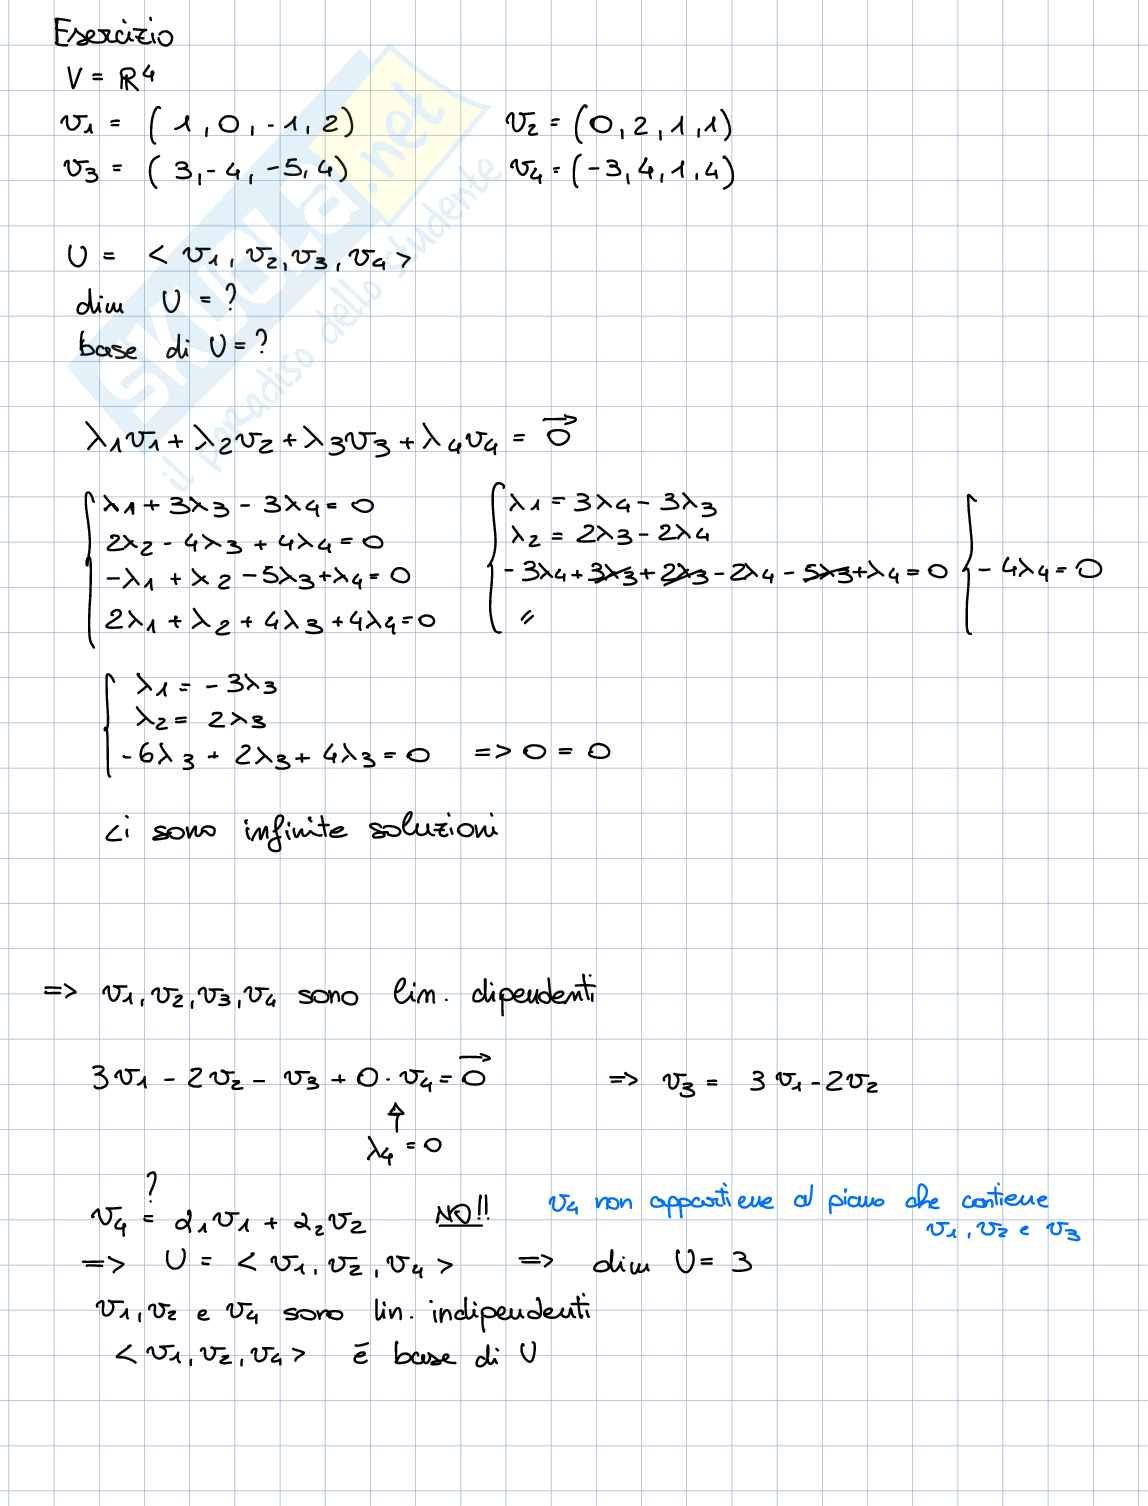 Esercizio
V = ℝ⁴
v₁ = (1, 0, -1, 2) v₂ = (0, 2, 1, 1)
v₃ = (3, -4, -5, 4) v₄ = (-3, 4, 1, 4)
U = < v₁, v₂, v₃, v₄ >
dim U = ?
base di U = ?
λ₁v₁ + λ₂v₂ + λ₃v₃ + λ₄v₄ = 0⃗
λ₁ + 3λ₃ - 3λ₄ = 0
2λ₂ - 4λ₃ + 4λ₄ = 0
-λ₁ + λ₂ - 5λ₃ + λ₄ = 0
2λ₁ + λ₂ + 4λ₃ + 4λ₄ = 0
λ₁ = 3λ₄ - 3λ₃
λ₂ = 2λ₃ - 2λ₄
-3λ₄ + 3λ₃ + 2λ₃ - 2λ₄ - 5λ₃ + λ₄ = 0
〃
-4λ₄ = 0
λ₁ = -3λ₃
λ₂ = 2λ₃
-6λ₃ + 2λ₃ + 4λ₃ = 0 => 0 = 0
ci sono infinite soluzioni
=> v₁, v₂, v₃, v₄ sono lin. dipendenti
3v₁ - 2v₂ - v₃ + 0 · v₄ = 0⃗ => v₃ = 3v₁ - 2v₂
↑
λ₄ = 0
?
v₄ = α₁v₁ + α₂v₂ NO!! v₄ non appartiene al piano che contiene
v₁, v₂ e v₃
=> U = < v₁, v₂, v₄ > => dim U = 3
v₁, v₂ e v₄ sono lin. indipendenti
< v₁, v₂, v₄ > è base di U
SKUOLA.net
il paradiso dello studente